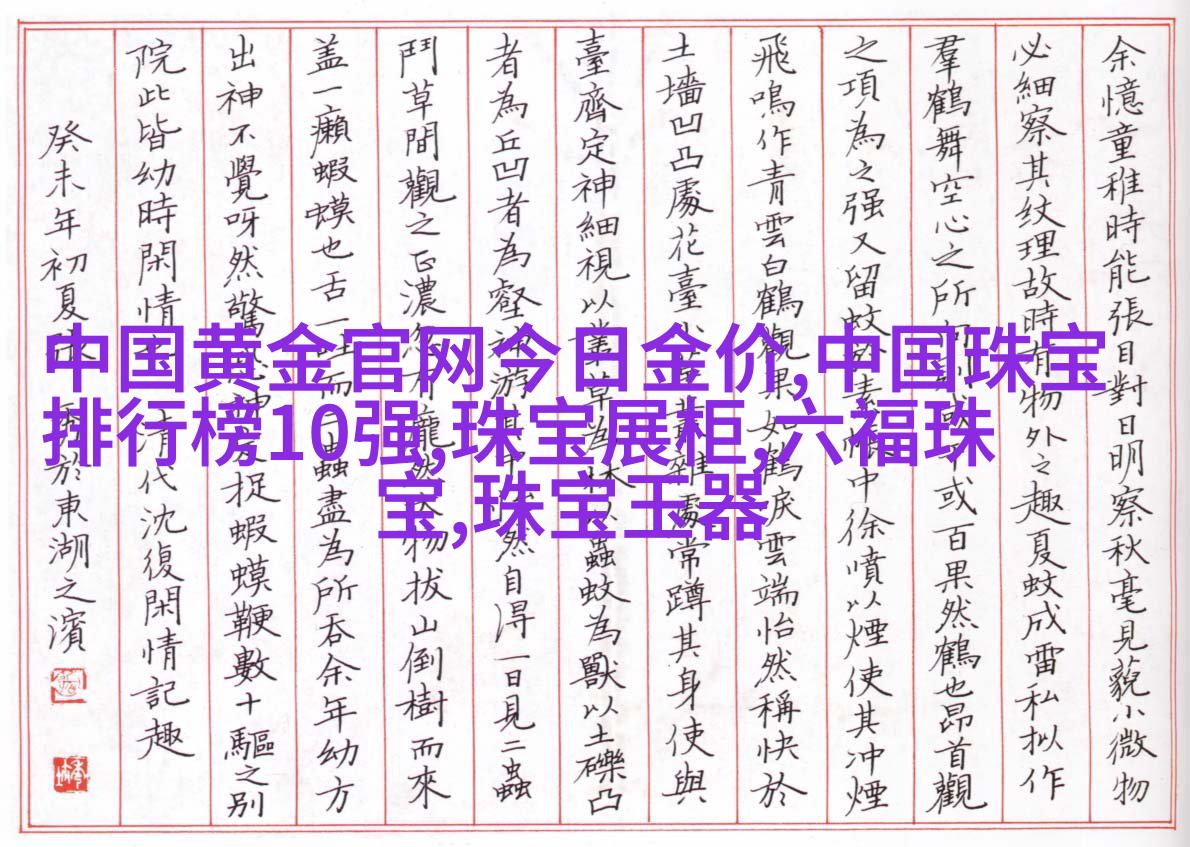 余憶童稚時能張目對日明察秋毫見藐小微物
必細察其纹理故時有物外之趣夏蚊成雷私拟作
羣鶴舞空心之所向則或千或百果然鶴也昂首觀
之項為之强又留蚊於素帳中徐噴以煙使其冲煙
飛鳴作青雲白鶴觀果如鶴唳雲端怡然稱快於
土墻凹凸處花臺小草叢雜處常蹲其身使與
臺齊定神細視以叢草為林以蟲蚊為獸以土礫凸
者為丘凹者為壑神游其中怡然自得一日見二蟲
鬥草間觀之正濃忽有龐然大物拔山倒樹而來
盖一癩蝦蟆也舌一吐而二蟲盡為所吞余年幼方
出神不覺呀然驚恐神定捉蝦蟆鞭數十驅之别
院此皆幼時閑情 清代沈復閑情記趣
癸未年初夏張 於東湖之濱
中国黄金官网今日金价,中国珠宝
排行榜10强,珠宝展柜,六福珠
宝,珠宝玉器